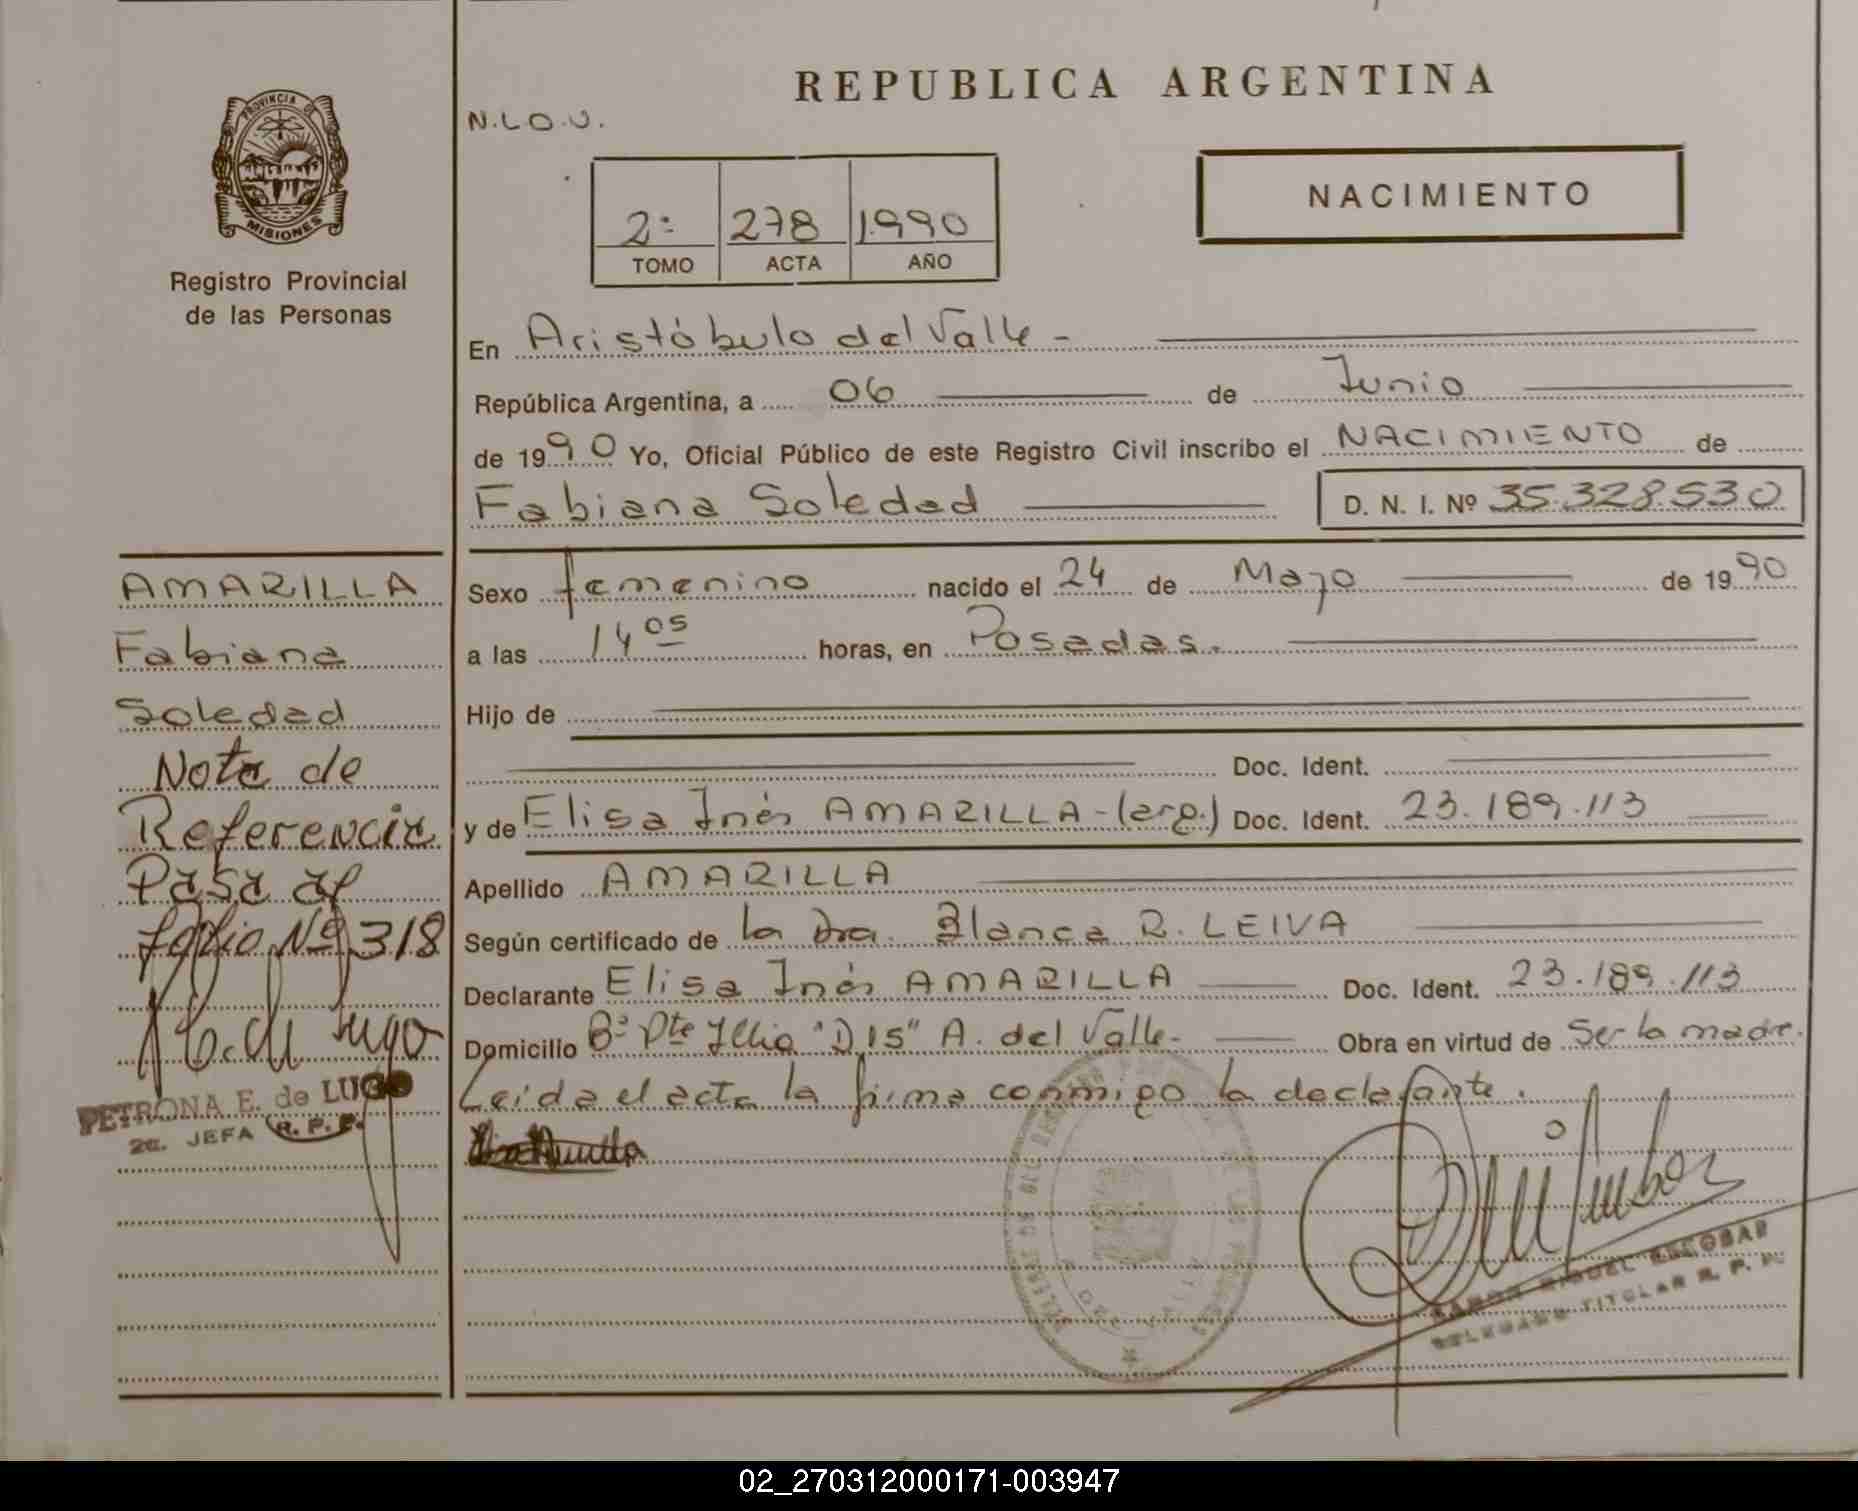 PROVINCIA DE
MISIONES
Registro Provincial
de las Personas
REPUBLICA ARGENTINA
N.L.O.U.
2º 278 1.990
TOMO ACTA AÑO
NACIMIENTO
En Aristóbulo del Valle -
República Argentina, a 06 de Junio
de 1990 Yo, Oficial Público de este Registro Civil inscribo el NACIMIENTO de
Fabiana Soledad D. N. I. Nº 35.328.530
Sexo femenino nacido el 24 de Mayo de 1990
a las 14 05 horas, en Posadas.
Hijo de
Doc. Ident.
y de Elisa Inés AMARILLA - (arg.) Doc. Ident. 23.189.113
Apellido AMARILLA
Según certificado de la Dra. Blanca R. LEIVA
Declarante Elisa Inés AMARILLA Doc. Ident. 23.189.113
Domicilio Bº Pte Illia "D 15" A. del Valle - Obra en virtud de Ser la madre.
Leida el acta la firma conmigo la declarante.
AMARILLA
Fabiana
Soledad
Nota de
Referencia
Pasa al
folio Nº 318
PETRONA E. de LUGO
2a. JEFA R. P. P.
RAMON MIGUEL ESCOBAR
DELEGADO TITULAR R. P. P.
02_270312000171-003947